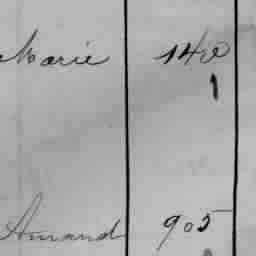 Marie 140
1
Amand 905